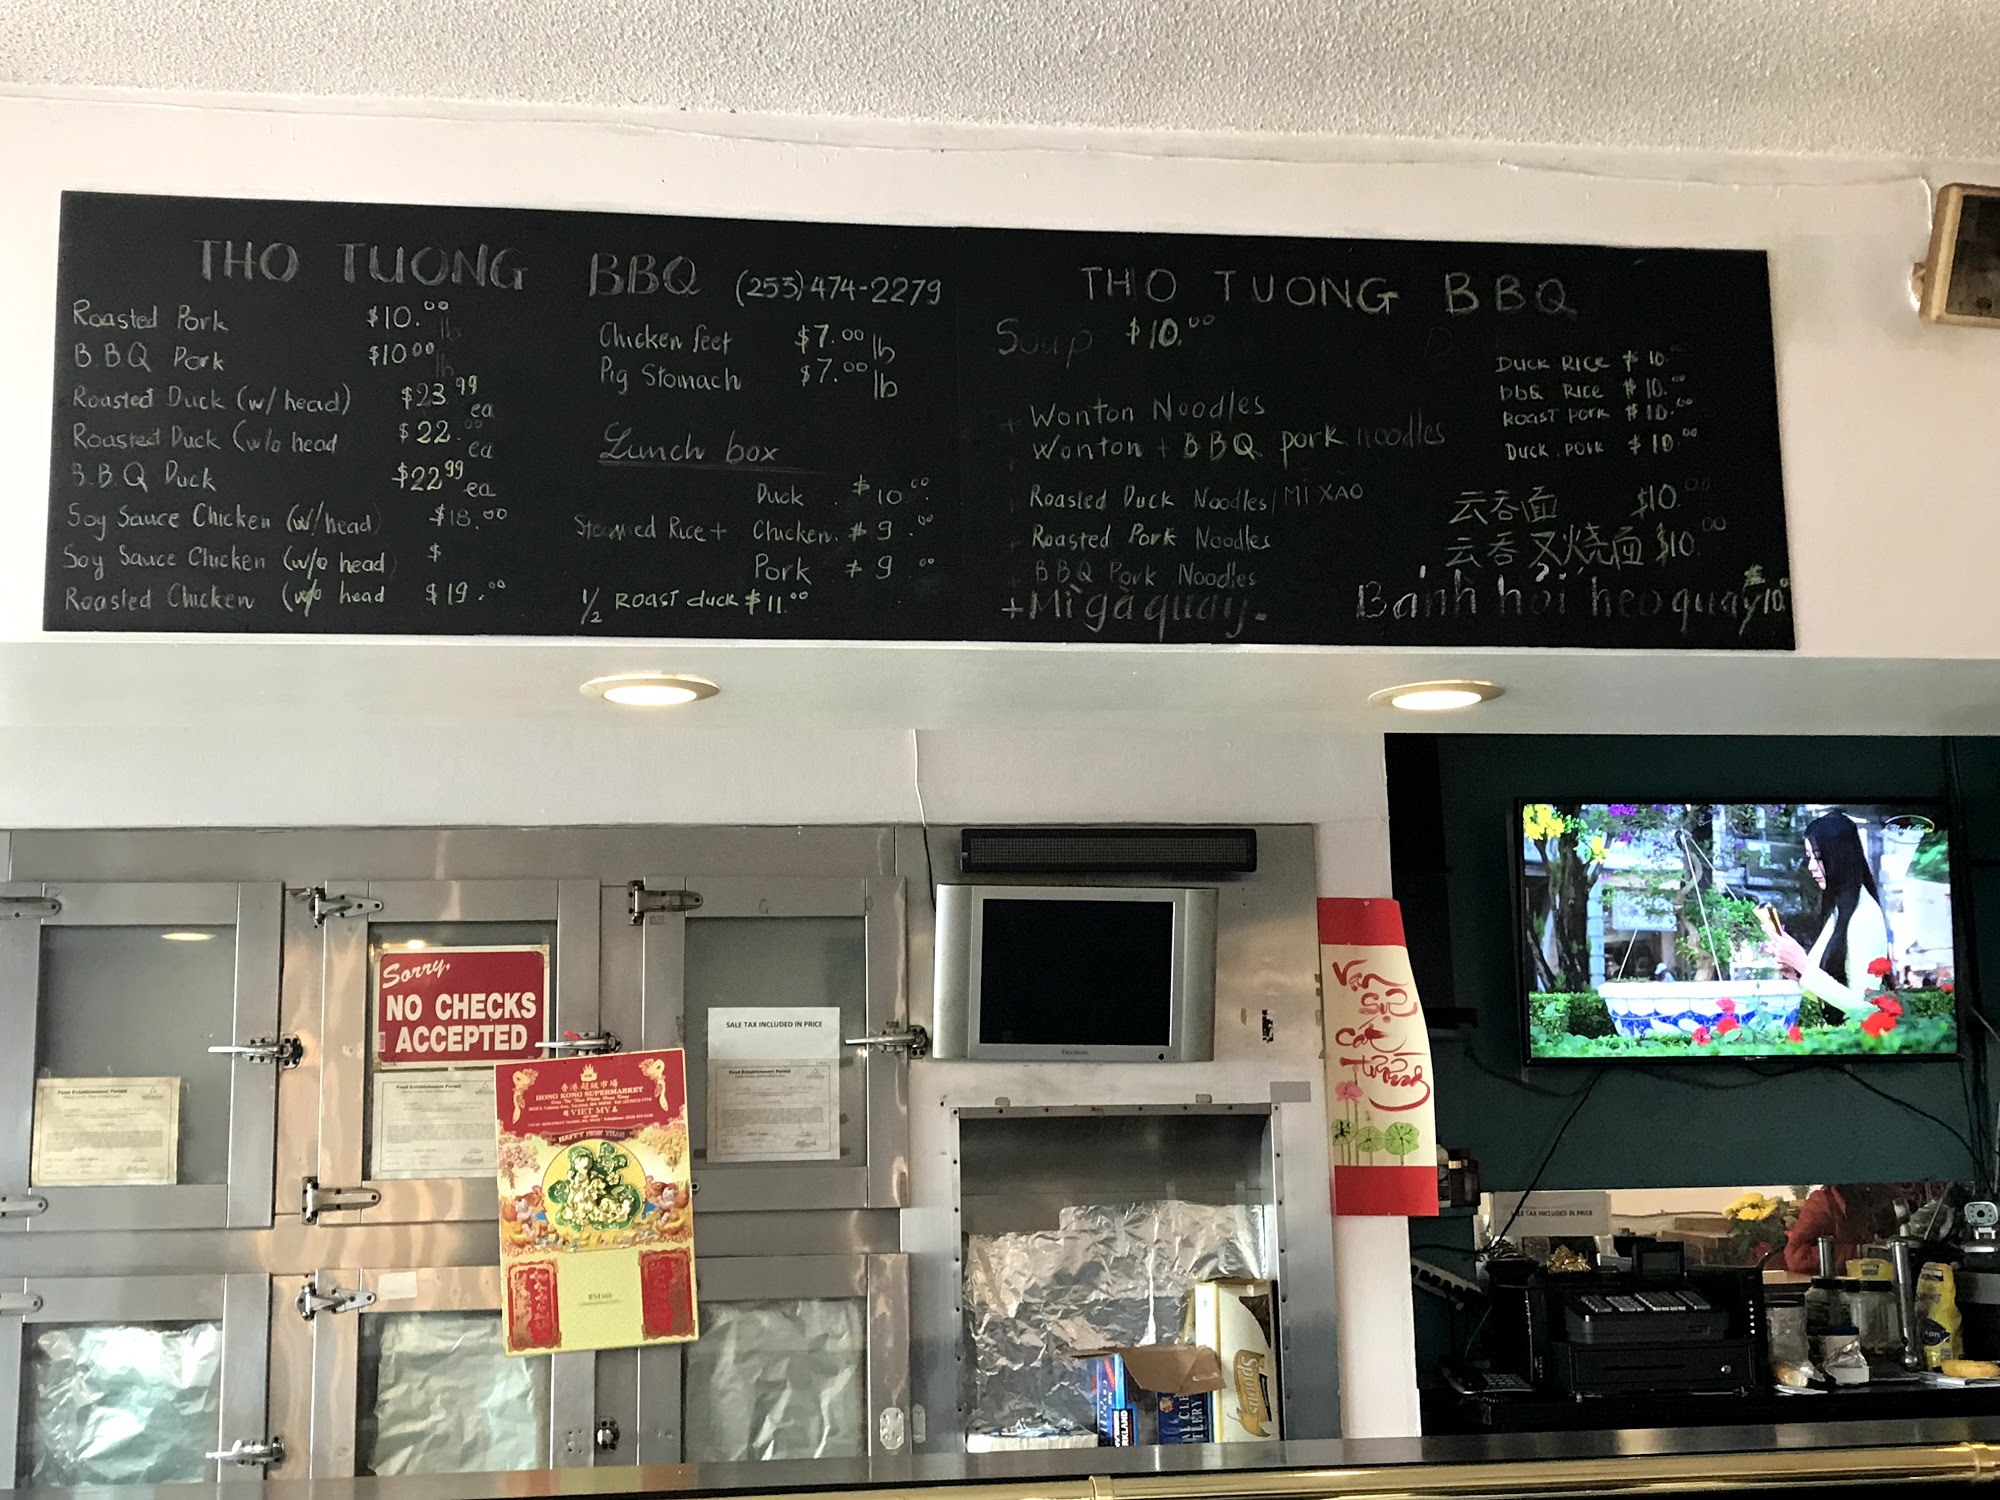 THO TUONG BBQ (253) 474-2279
Roasted Pork $10.00 lb
B.B.Q Pork $10.00 lb
Roasted Duck (w/ head) $23.99 ea
Roasted Duck (w/o head $22.00 ea
B.B.Q Duck $22.99 ea
Soy Sauce Chicken (w/head) $18.00
Soy Sauce Chicken (w/o head) $
Roasted Chicken (w/o head $19.00
Chicken feet $7.00 lb
Pig Stomach $7.00 lb
Lunch box
Duck $10.00
Steamed Rice + Chicken. $9.00
Pork $9.00
1/2 ROAST duck $11.00
THO TUONG BBQ
Soup $10.00
+ Wonton Noodles
Wonton + BBQ pork noodles
Roasted Duck Noodles/MÌ XÀO
+ Roasted Pork Noodles
+ BBQ Pork Noodles
+ Mì gà quay.
DUCK RICE $10.00
bbq RICE $10.00
ROAST PORK $10.00
DUCK. PORK $10.00
云吞面 $10.00
云吞叉烧面 $10.00
Bánh hỏi heo quay $10.
Sorry,
NO CHECKS
ACCEPTED
SALE TAX INCLUDED IN PRICE
Food Establishment Permit
Food Establishment Permit
Food Establishment Permit
香港超級市場
HONG KONG SUPERMARKET
VIET MY
HAPPY NEW YEAR
ViewSonic
Vạn
Sự
Cát
Tường
SALE TAX INCLUDED IN PRICE
spoons
KIRKLAND